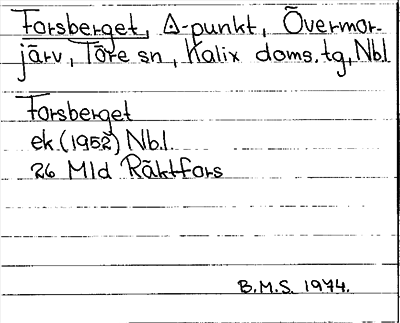 Forsberget, △-punkt, Övermor-
järv, Töre sn, Kalix doms.tg, Nbl.
Forsberget
ek. (1952) Nb.l.
26 Mld Räktfors
B.M.S. 1974.